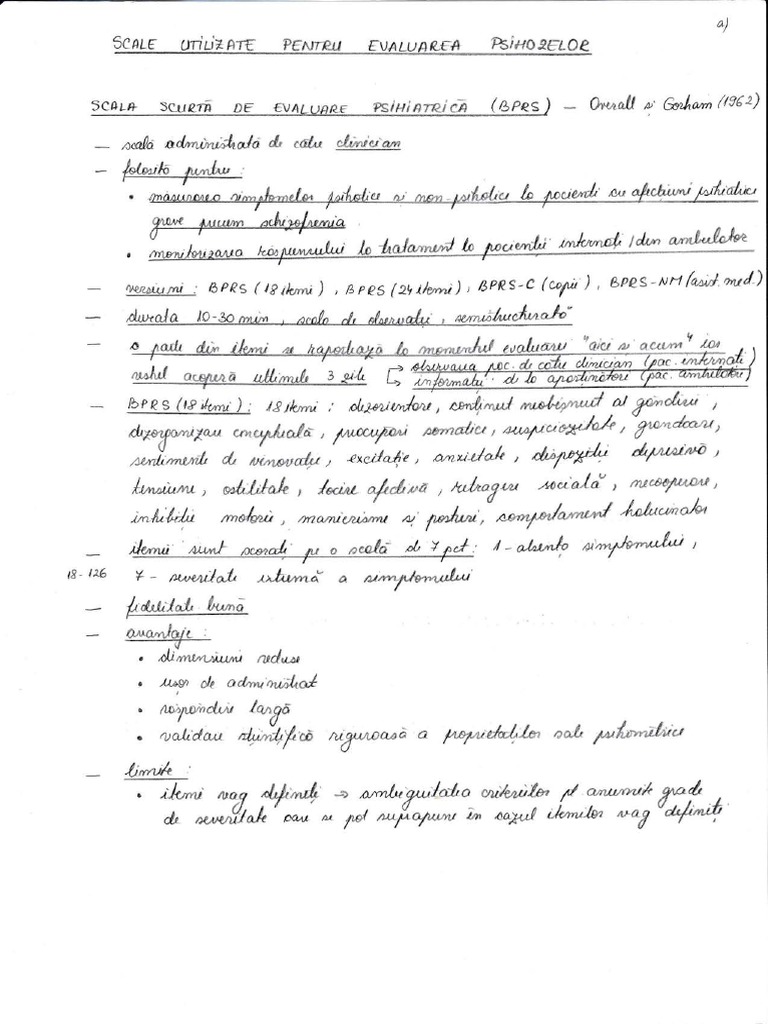 a)
SCALE UTILIZATE PENTRU EVALUAREA PSIHOZELOR
SCALA SCURTĂ DE EVALUARE PSIHIATRICĂ (BPRS) – Overall și Gorham (1962)
– scală administrată de către clinician
– folosită pentru :
• măsurarea simptomelor psihotice și non-psihotice la pacienți cu afecțiuni psihiatrice
grave precum schizofrenia
• monitorizarea răspunsului la tratament la pacienții internați / din ambulator
– versiuni : BPRS (18 itemi) , BPRS (24 itemi) , BPRS-C (copii) , BPRS-NM (asist. med.)
– durata 10-30 min , scală de observație , semistructurată
– o parte din itemi se raportează la momentul evaluării "aici și acum" iar
restul acoperă ultimele 3 zile → observarea pac. de către clinician (pac. internați)
→ informații de la aparținători (pac. ambulatori)
– BPRS (18 itemi) : 18 itemi : dezorientare, conținut neobișnuit al gândirii ,
dezorganizare conceptuală , preocupări somatice , suspiciozitate , grandoare ,
sentimente de vinovăție , excitație , anxietate , dispoziție depresivă ,
tensiune , ostilitate , tocire afectivă , retragere socială , necooperare ,
inhibiție motorie , manierisme și posturi , comportament halucinator
– itemii sunt scorați pe o scală de 7 pct : 1 - absența simptomului ,
18 - 126 7 - severitate extremă a simptomului
– fidelitate bună
– avantaje :
• dimensiuni reduse
• ușor de administrat
• răspândire largă
• validare științifică riguroasă a proprietăților sale psihometrice
– limite :
• itemi vag definiți → ambiguitatea criteriilor pt anumite grade
de severitate care se pot suprapune în cazul itemilor vag definiți